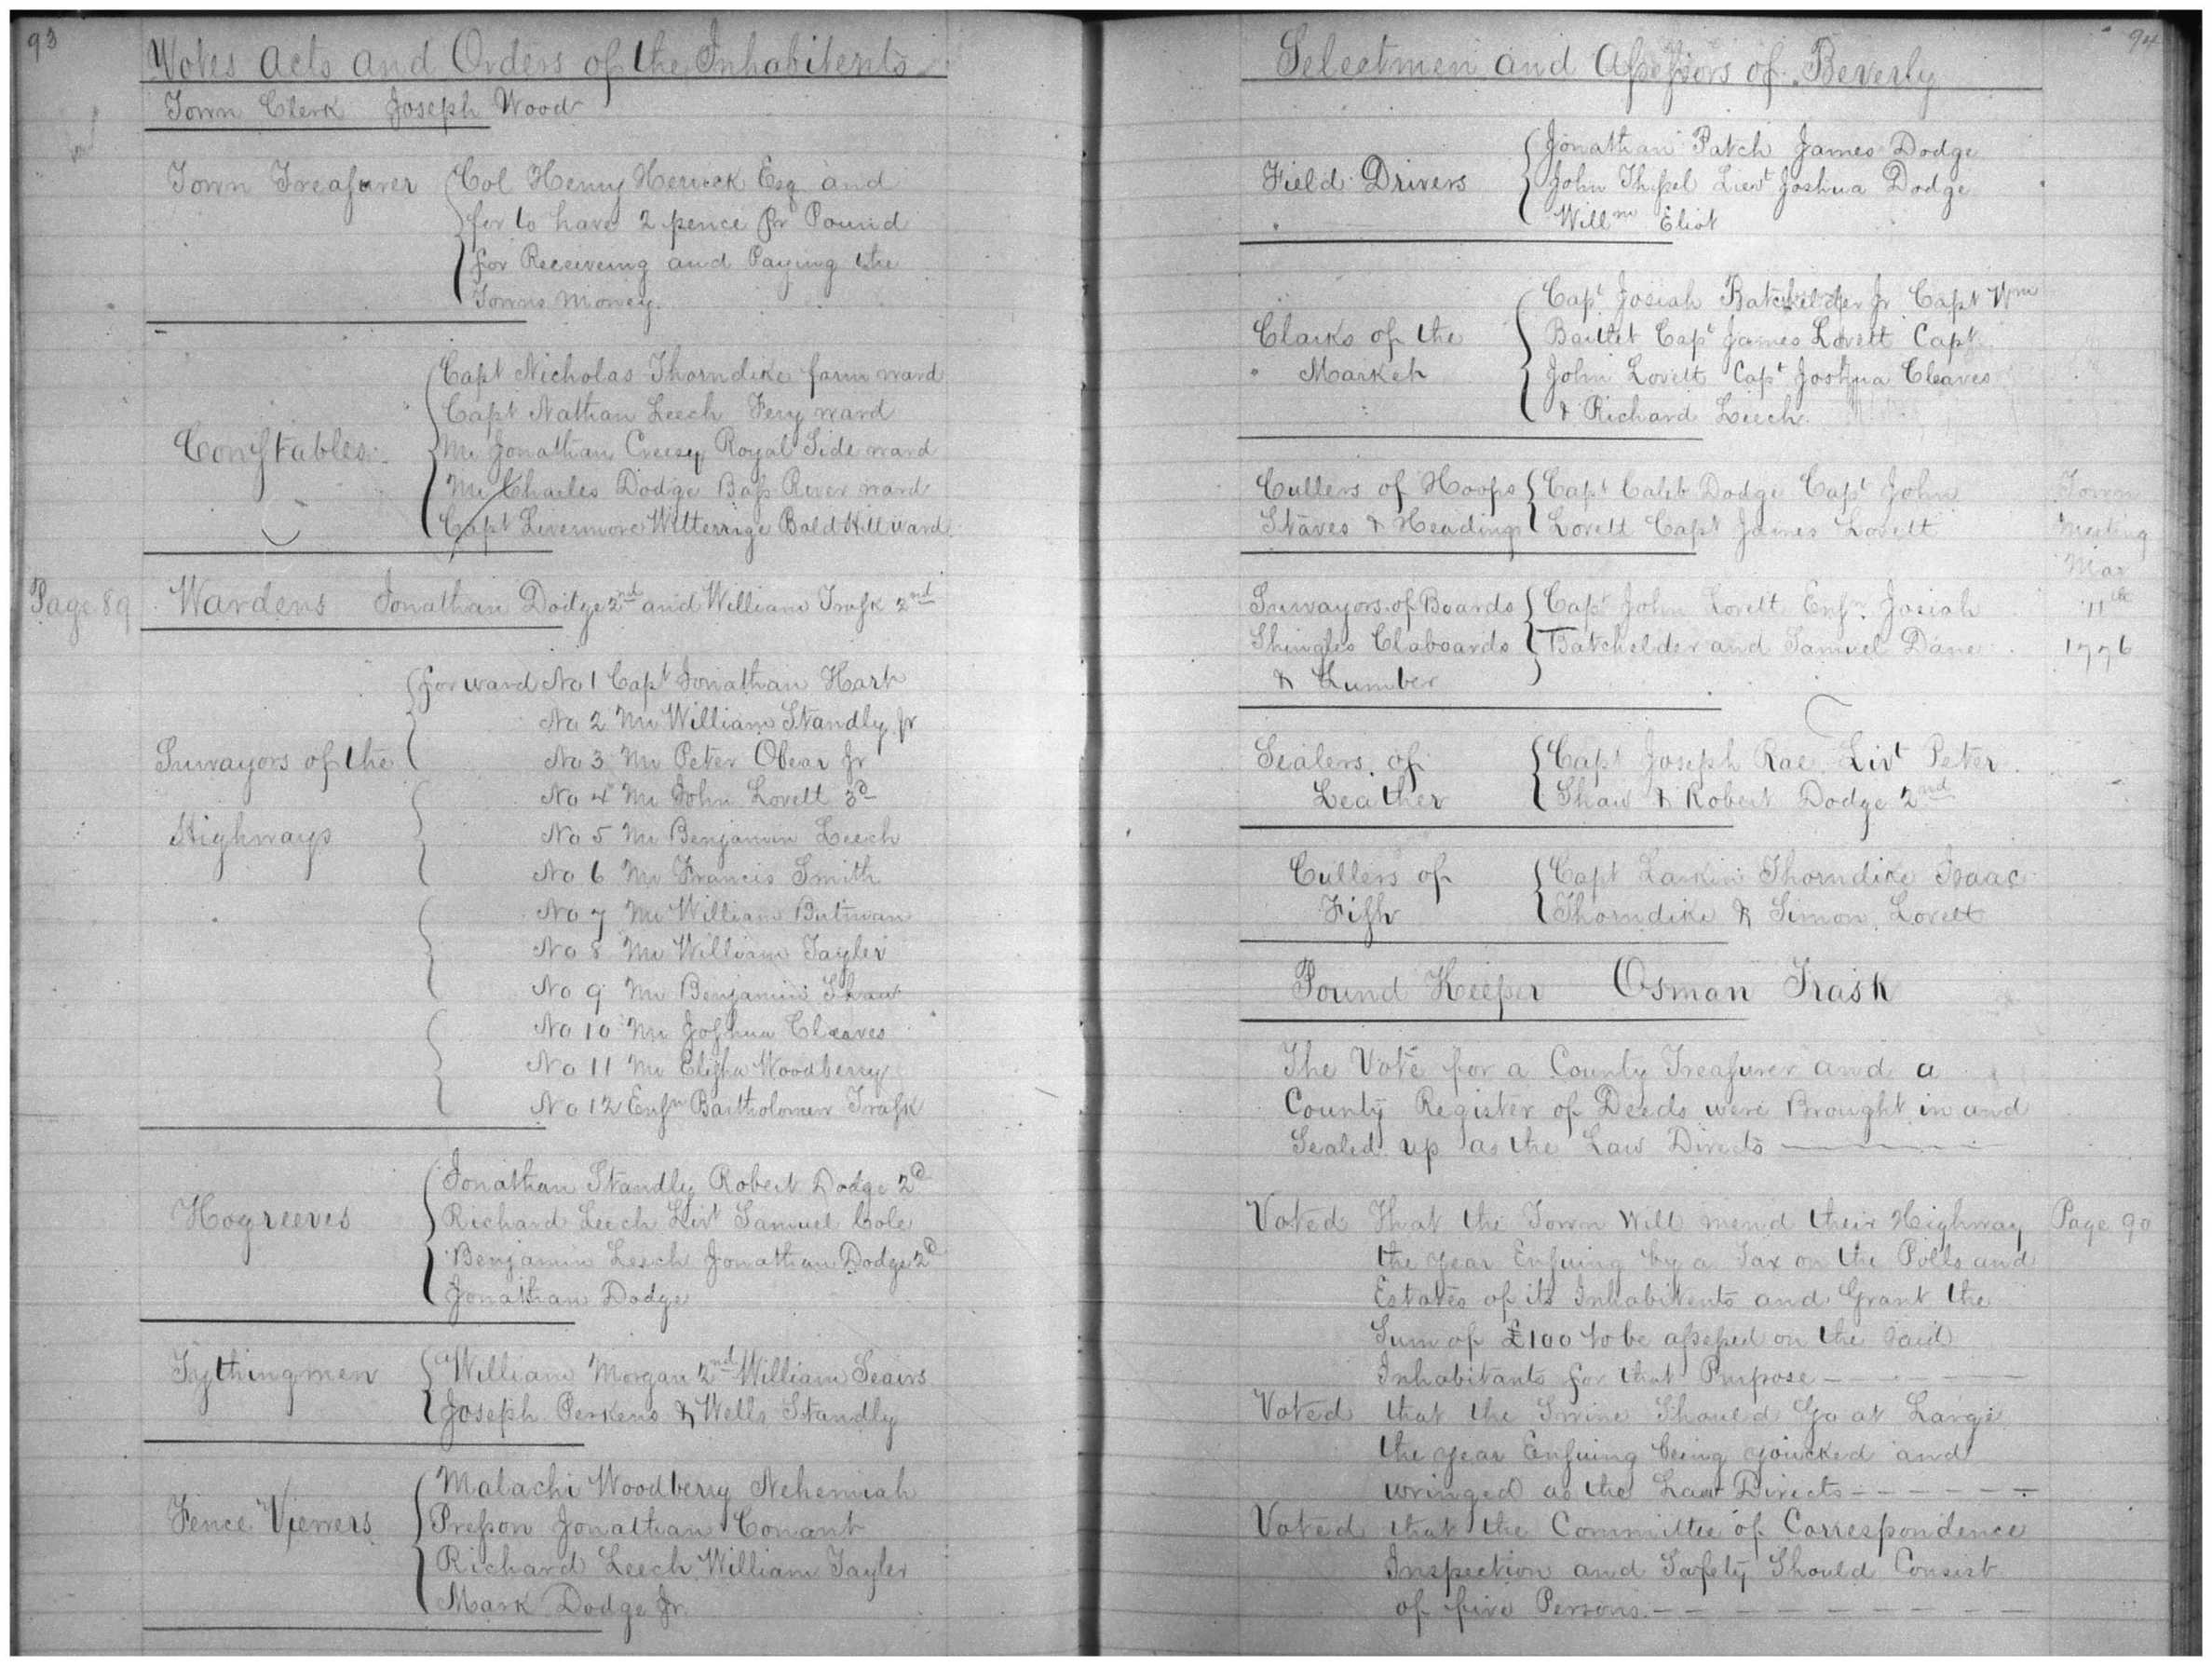 93
Votes Acts and Orders of the Inhabitents
Town Clerk Joseph Wood
Town Treasurer Col Henry Herrick Esq and
for to have 2 pence Pr Pound
for Receiveing and Paying the
Towns money.
Constables
Capt Nicholas Thorndike farm ward
Capt Nathan Leech Fery ward
Mr Jonathan Creesy Royal Side ward
Mr Charles Dodge Bass River ward
Capt Livermore Witterrige Bald Hill ward
Page 89 Wardens Jonathan Dodge 2nd and William Trask 2nd
Survayors of the Highways
for ward No 1 Capt Jonathan Hart
No 2 Mr William Standly Jr
No 3 Mr Peter Obear Jr
No 4 Mr John Lovett 3d
No 5 Mr Benjamin Leech
No 6 Mr Francis Smith
No 7 Mr William Butman
No 8 Mr William Tayler
No 9 Mr Benjamin Shaw
No 10 Mr Joshua Cleaves
No 11 Mr Elisha Woodberry
No 12 Ensn Bartholomew Trask
Hogreeves
Jonathan Standly Robert Dodge 2d
Richard Leech Livt Samuel Cole
Benjamin Leech Jonathan Dodge 2d
Jonathan Dodge
Tythingmen
William Morgan 2nd William Seairs
Joseph Perkens & Wells Standly
Fence Viewers
Malachi Woodberry Nehemiah
Presson Jonathan Conant
Richard Leech William Tayler
Mark Dodge Jr.
94
Selectmen and Assessors of Beverly
Field Drivers
Jonathan Patch James Dodge
John Thissel Lievt Joshua Dodge
Willm Eliot
Clarks of the
Market
Capt Josiah Batchelder Jr Capt Wm
Bartlet Capt James Lovett Capt
John Lovett Capt Joshua Cleaves
& Richard Leech.
Cullers of Hoops
Staves & Headings
Capt Caleb Dodge Capt John
Lovett Capt James Lovett
Town
Meeting
Mar
11th
1776
Survayors of Boards
Shingles Claboards
& Lumber
Capt John Lovett Ensn Josiah
Batchelder and Samuel Dane
Sealers of
Leather
Capt Joseph Rae Livt Peter
Shaw & Robert Dodge 2nd
Cullers of
Fish
Capt Larkin Thorndike Isaac
Thorndike & Simon Lovett
Pound Keeper Osman Trask
The Vote for a County Treasurer and a
County Register of Deeds were Brought in and
Sealed up as the Law Directs
Voted That the Town Will mend their Highway Page 90
the year Ensuing by a Tax on the Polls and
Estates of its Inhabitents and Grant the
Sum of £100 to be assessed on the said
Inhabitants for that Purpose
Voted that the Swine Should Go at Large
the year Ensuing being youcked and
wringed as the Law Directs
Voted that the Committee of Correspondence
Inspection and Safety Should Consist
of five Persons.